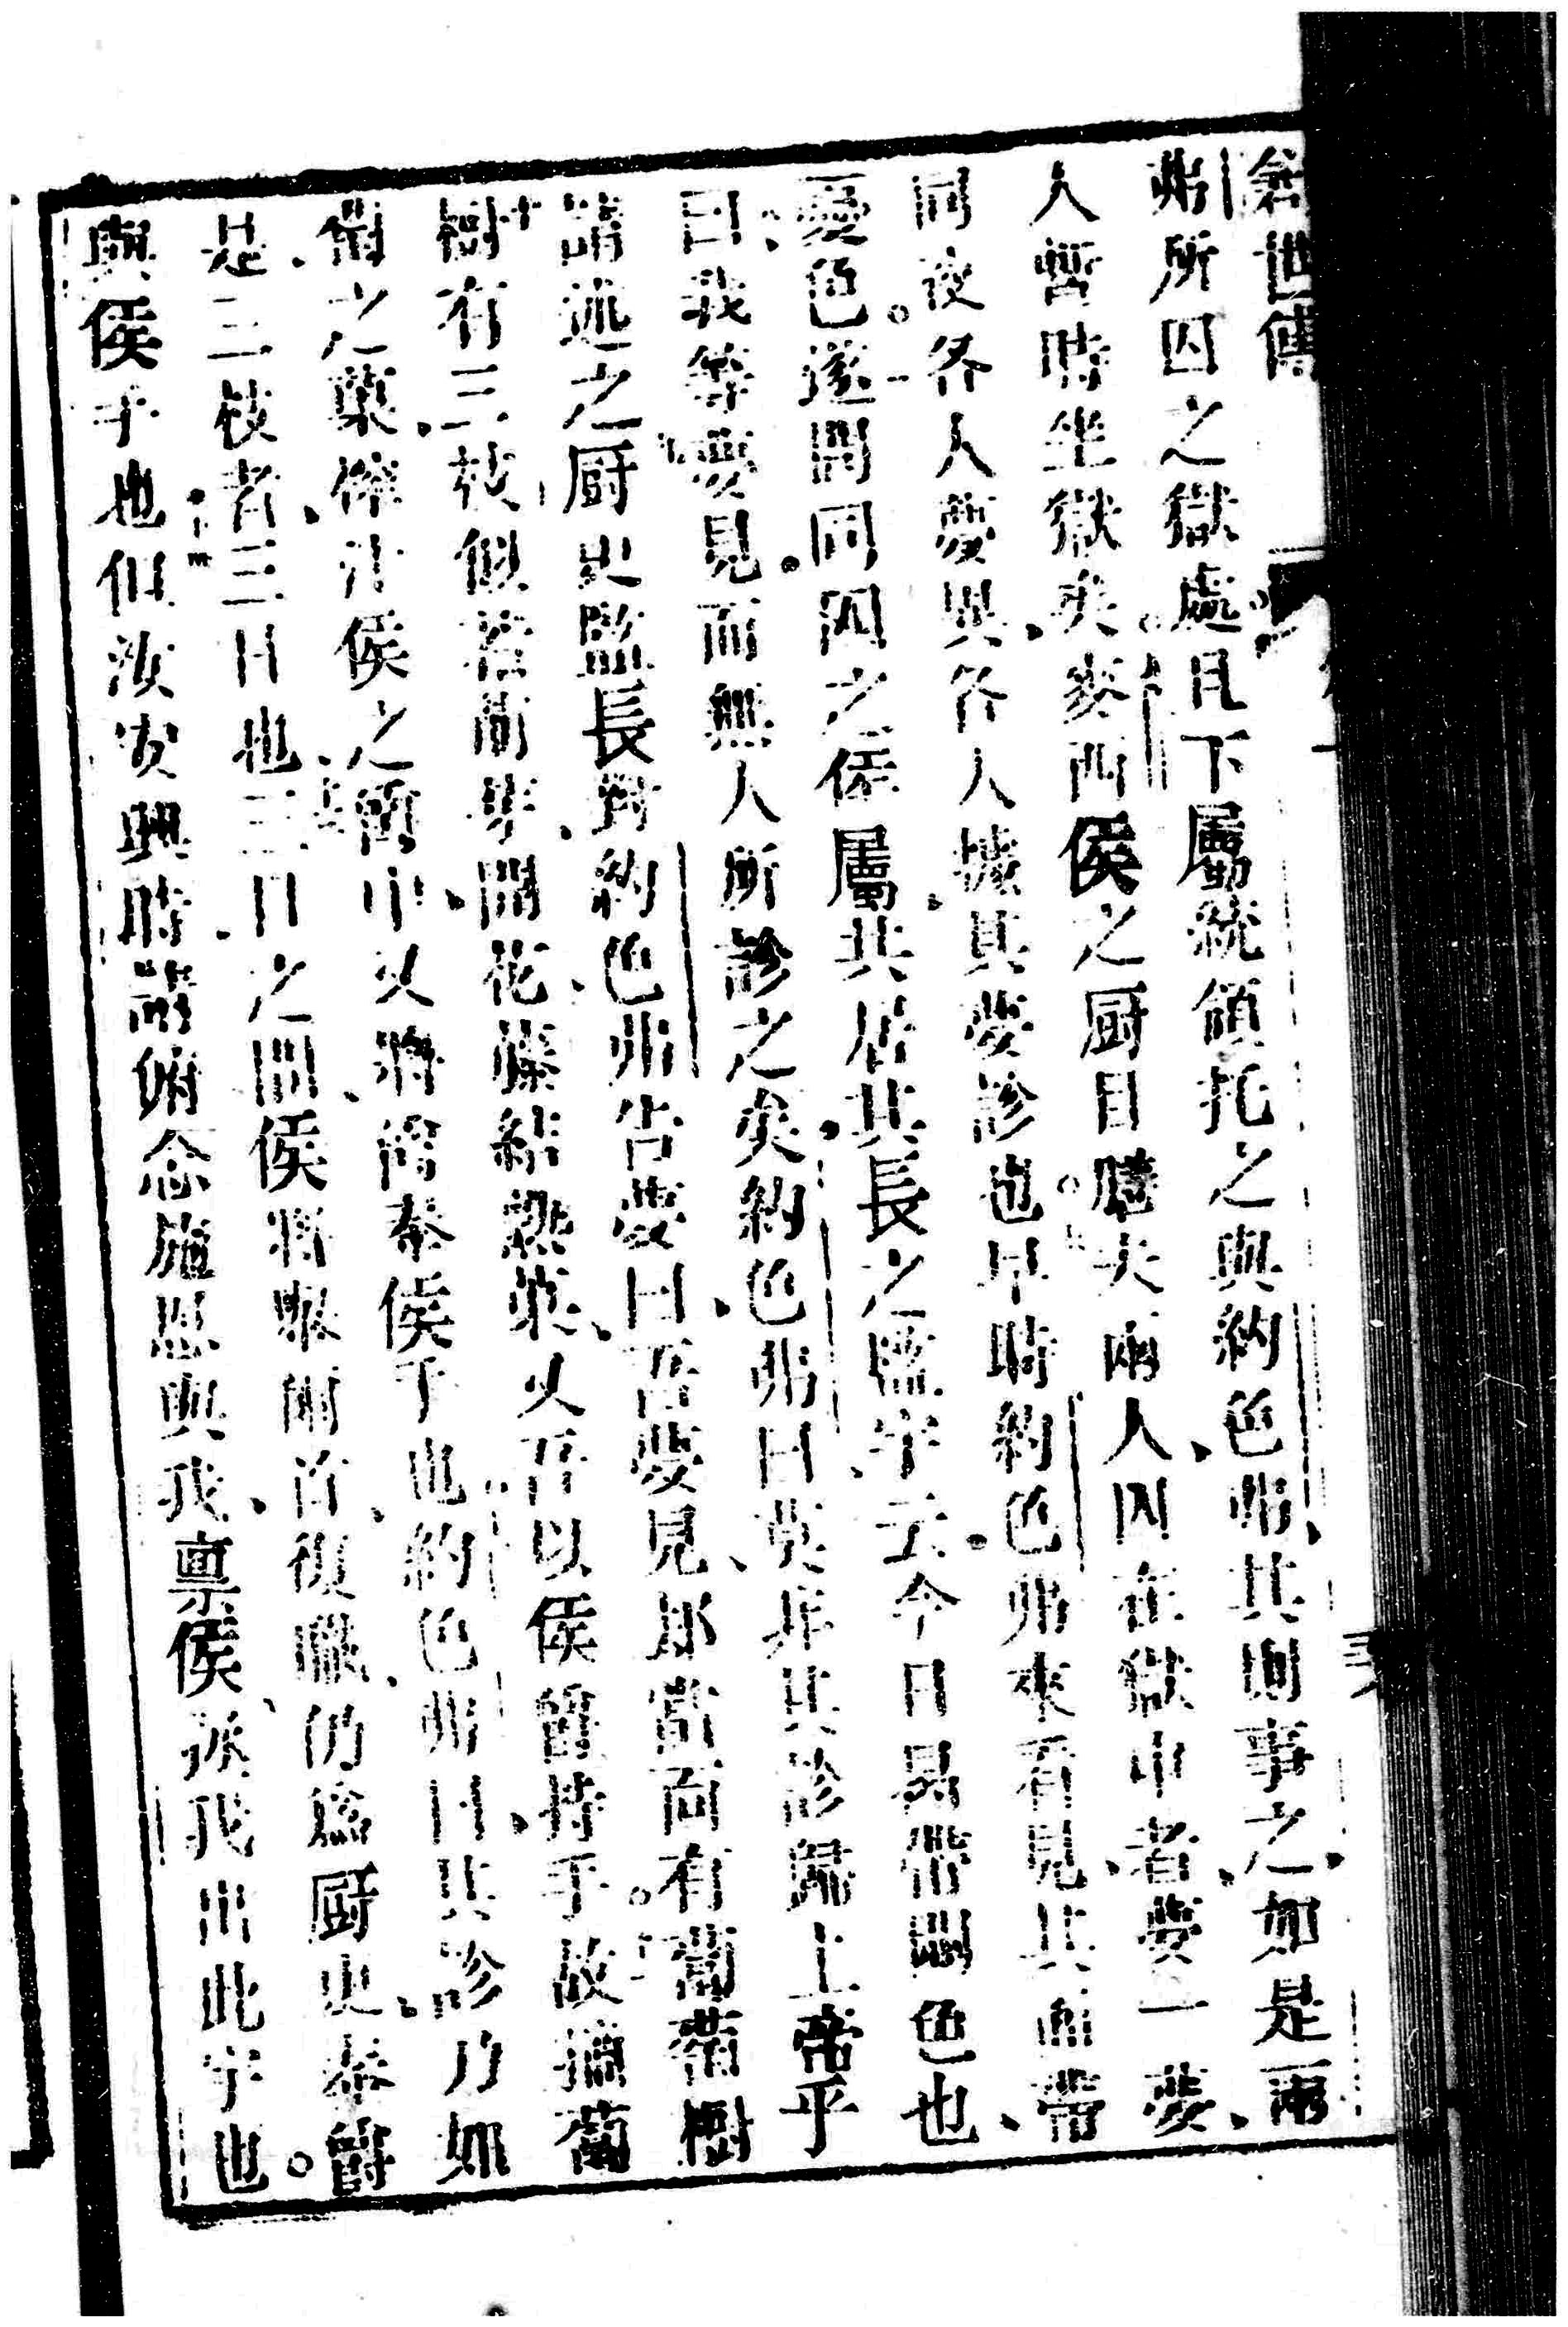 創世傳
弗所囚之獄處且下屬統領托之與約色弗其則事之如是兩
人暫時坐獄矣麥西侯之厨目膳夫兩人囚在獄中者夢一夢
同夜各人夢異各人據其夢診也早時約色弗來看見其面帶
憂色遂問同囚之侯屬共居其長之監字云今日曷帶悶色也
曰我等夢見而無人所診之矣約色弗曰莫非其診歸上帝乎
請述之厨史監長對約色弗告夢曰吾夢見那當面有葡萄樹
樹有三枝似若萌芽開花條結熟菓又吾以侯爵持手故摘葡
萄之菓榨汁侯之爵中又將爵奉侯手也約色弗曰其診乃如
是三枝者三日也三日之間侯將擧爾首復職仍爲厨史奉爵
與侯手也但汝安興時請俯念施恩與我禀侯挨我出此宇也